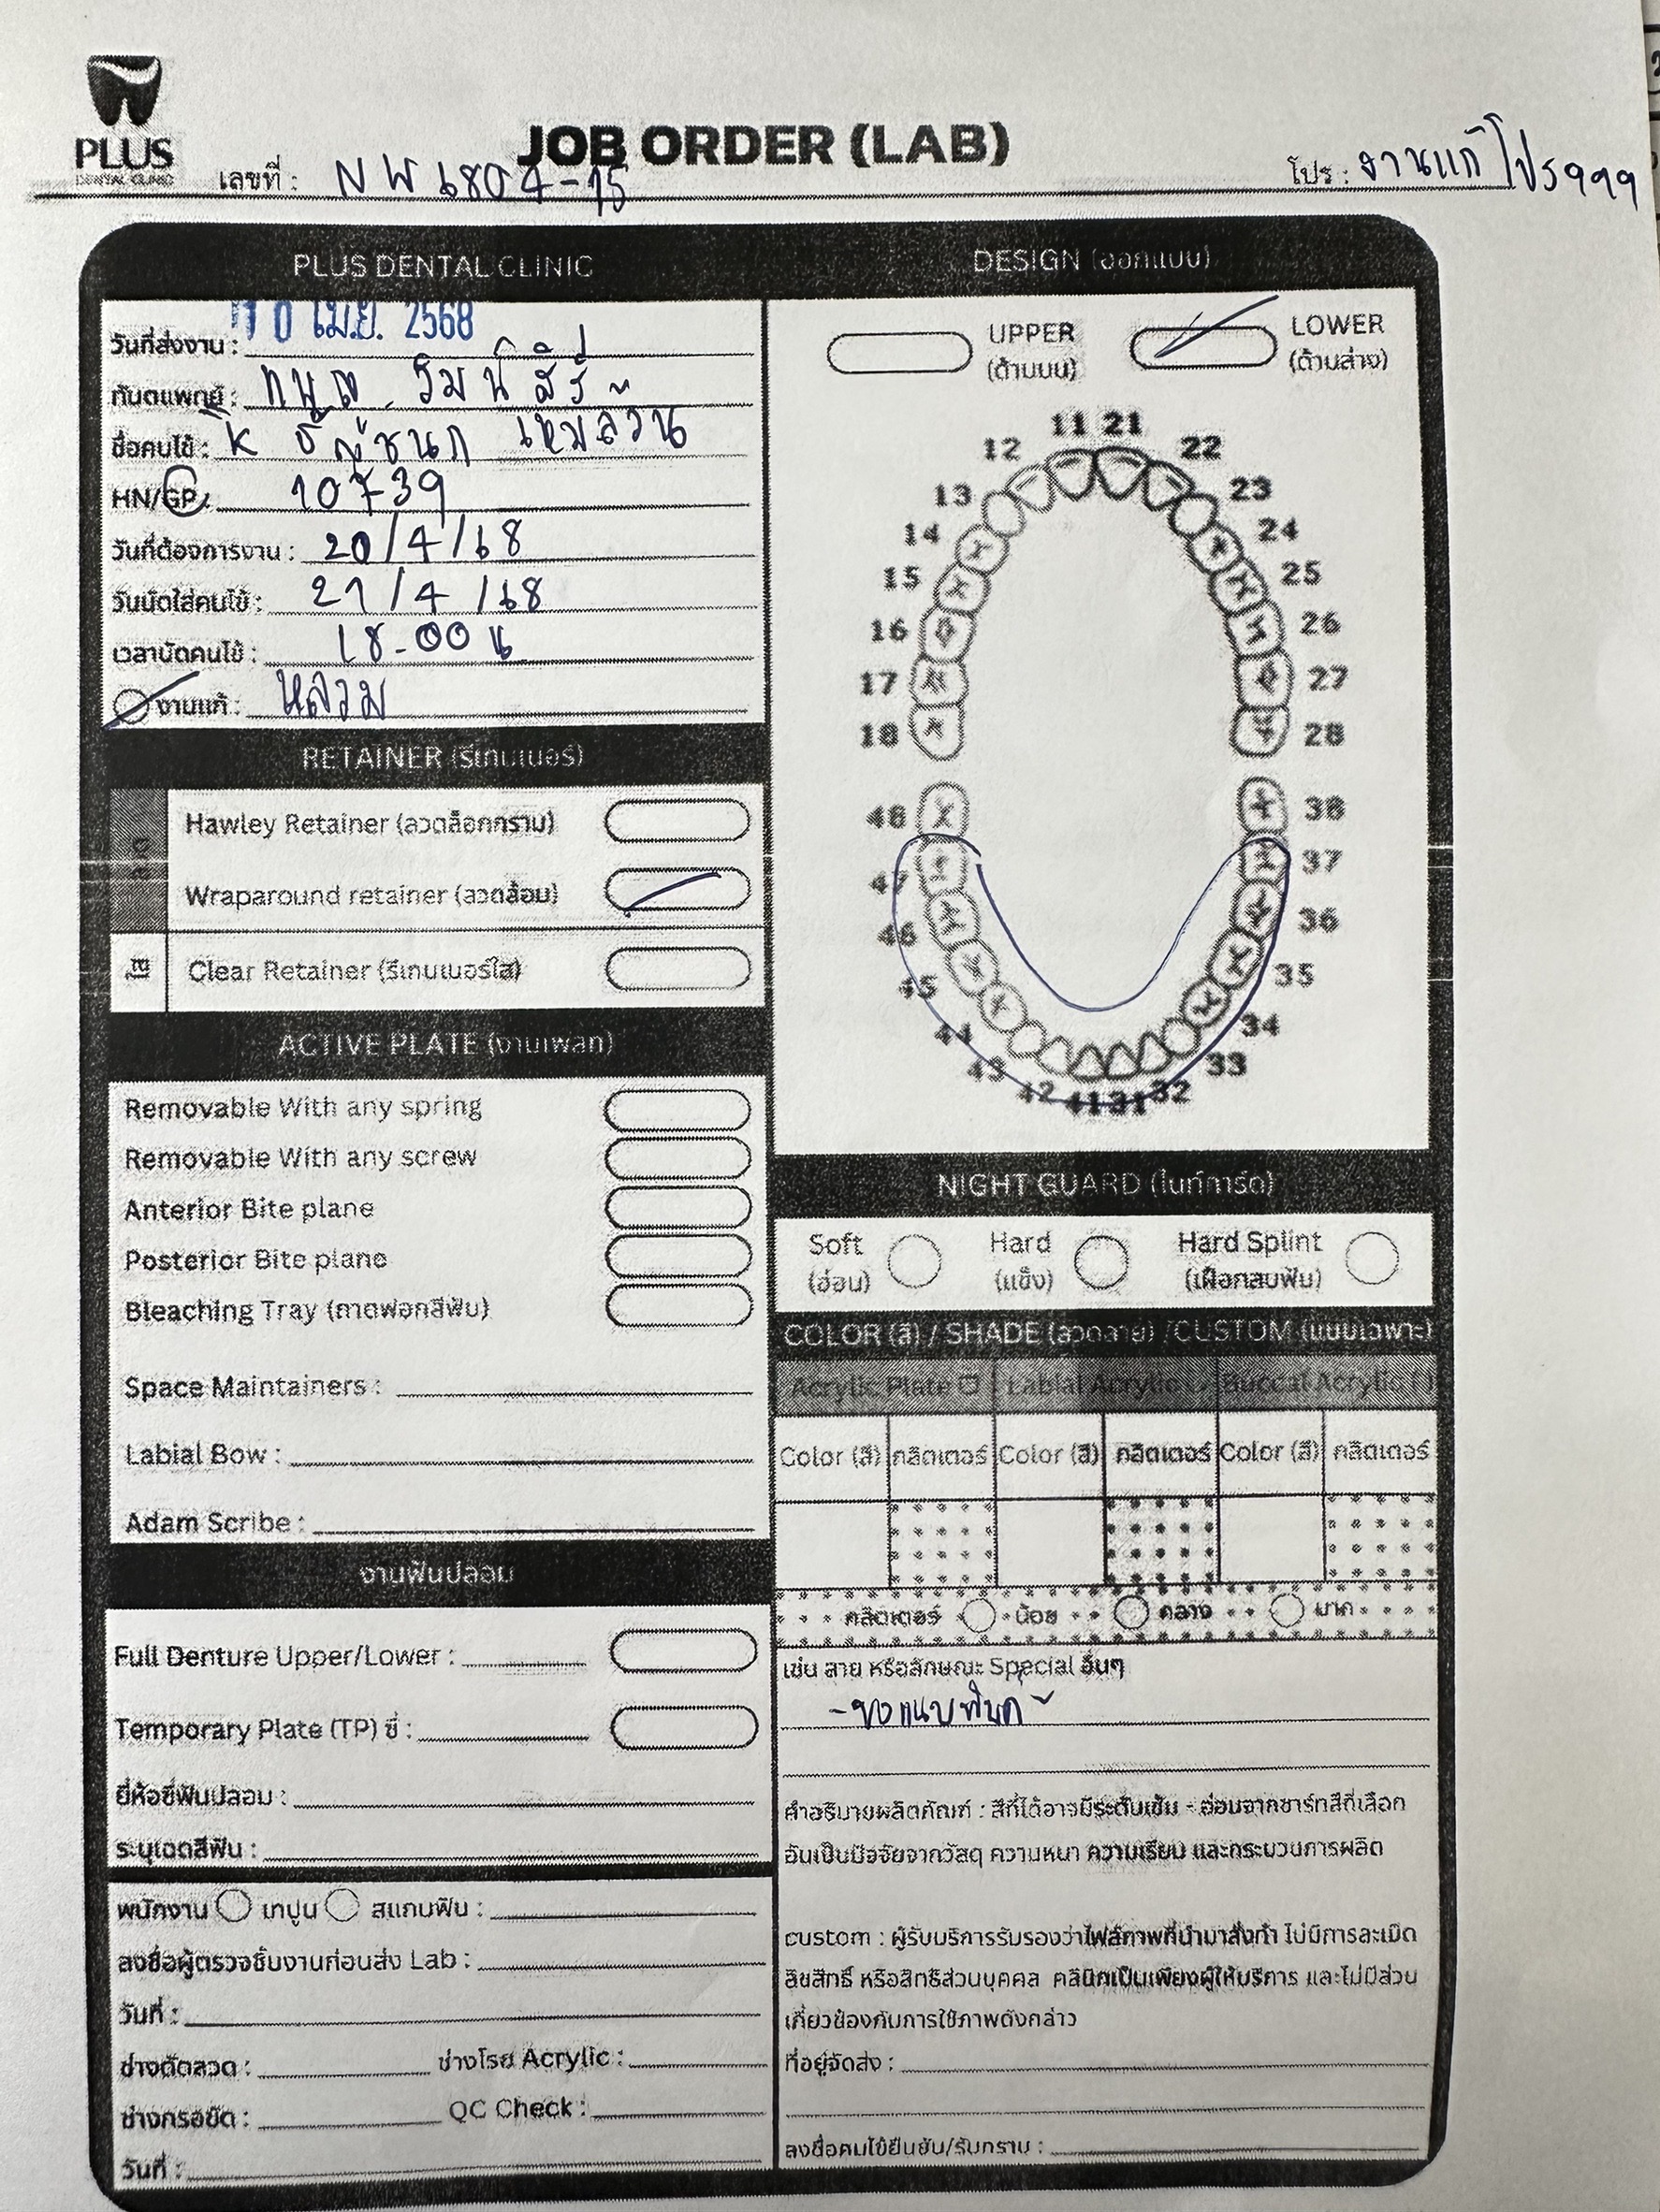 PLUS
DENTAL CLINIC
JOB ORDER (LAB)
เลขที่ : NW6804-15
โปร : งานแก้ โปร999
PLUS DENTAL CLINIC
วันที่ส่งงาน : 10 เม.ย. 2568
ทันตแพทย์ : ทพญ.
ชื่อคนไข้ : K
HN/GP : 10739
วันที่ต้องการงาน : 20/4/68
วันนัดใส่คนไข้ : 21/4/68
เวลานัดคนไข้ : 18.00 น
งานแก้ : หลวม
RETAINER (รีเทนเนอร์)
Hawley Retainer (ลวดล็อกกราม)
Wraparound retainer (ลวดล้อม)
ใส
Clear Retainer (รีเทนเนอร์ใส)
ACTIVE PLATE (งานเพลท)
Removable With any spring
Removable With any screw
Anterior Bite plane
Posterior Bite plane
Bleaching Tray (ถาดฟอกสีฟัน)
Space Maintainers :
Labial Bow :
Adam Scribe :
งานฟันปลอม
Full Denture Upper/Lower :
Temporary Plate (TP) ซี่ :
ยี่ห้อซี่ฟันปลอม :
ระบุเฉดสีฟัน :
พนักงาน เทปูน สแกนฟัน :
ลงชื่อผู้ตรวจชิ้นงานก่อนส่ง Lab :
วันที่ :
ช่างดัดลวด : ช่างโรย Acrylic :
ช่างกรอขัด : QC Check :
วันที่ :
DESIGN (ออกแบบ)
UPPER
(ด้านบน)
LOWER
(ด้านล่าง)
11 21
12 22
13 23
14 24
15 25
16 26
17 27
18 28
48 38
47 37
46 36
45 35
44 34
43 33
42 41 31 32
NIGHT GUARD (ไนท์การ์ด)
Soft Hard Hard Splint
(อ่อน) (แข็ง) (เฝือกสบฟัน)
COLOR (สี) / SHADE (ลวดลาย) /CUSTOM (แบบเฉพาะ)
Acrylic Plate Labial Acrylic Buccal Acrylic
Color (สี) กลิตเตอร์ Color (สี) กลิตเตอร์ Color (สี) กลิตเตอร์
กลิตเตอร์ น้อย กลาง มาก
เช่น ลาย หรือลักษณะ Special อื่นๆ
คำอธิบายผลิตภัณฑ์ : สีที่ได้อาจมีระดับเข้ม - อ่อนจากชาร์ทสีที่เลือก
อันเป็นปัจจัยจากวัสดุ ความหนา ความเรียบ และกระบวนการผลิต
custom : ผู้รับบริการรับรองว่าไฟล์ภาพที่นำมาสั่งทำ ไม่มีการละเมิด
ลิขสิทธิ์ หรือสิทธิส่วนบุคคล คลินิกเป็นเพียงผู้ให้บริการ และไม่มีส่วน
เกี่ยวข้องกับการใช้ภาพดังกล่าว
ที่อยู่จัดส่ง :
ลงชื่อคนไข้ยืนยัน/รับทราบ :